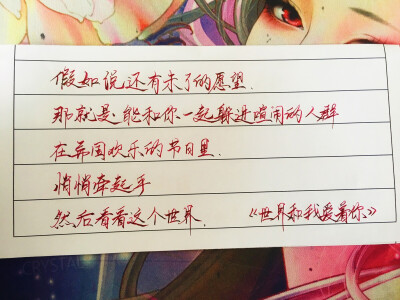 假如说还有未了的愿望.
那就是能和你一起躲进喧闹的人群
在异国欢乐的节日里.
悄悄牵起手
然后看看这个世界. 《世界和我爱着你》